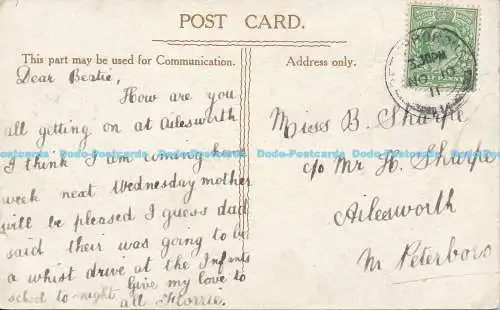 POST CARD.
This part may be used for Communication.
Address only.
Dear Beatie,
How are you
all getting on at Ailesworth
I think I am coming here
week next Wednesday mother
will be pleased I guess dad
said their was going to be
a whist drive at the Infants
school to-night Give my love to
all Florrie.
Misses B. Sharpe
c/o Mr H. Sharpe
Ailesworth
Nr Peterboro
5.30PM
NO 10
11
Dodo-Postcards Dodo-Postcards Dodo-Postcards Dodo-Postcards Dodo-Postcards